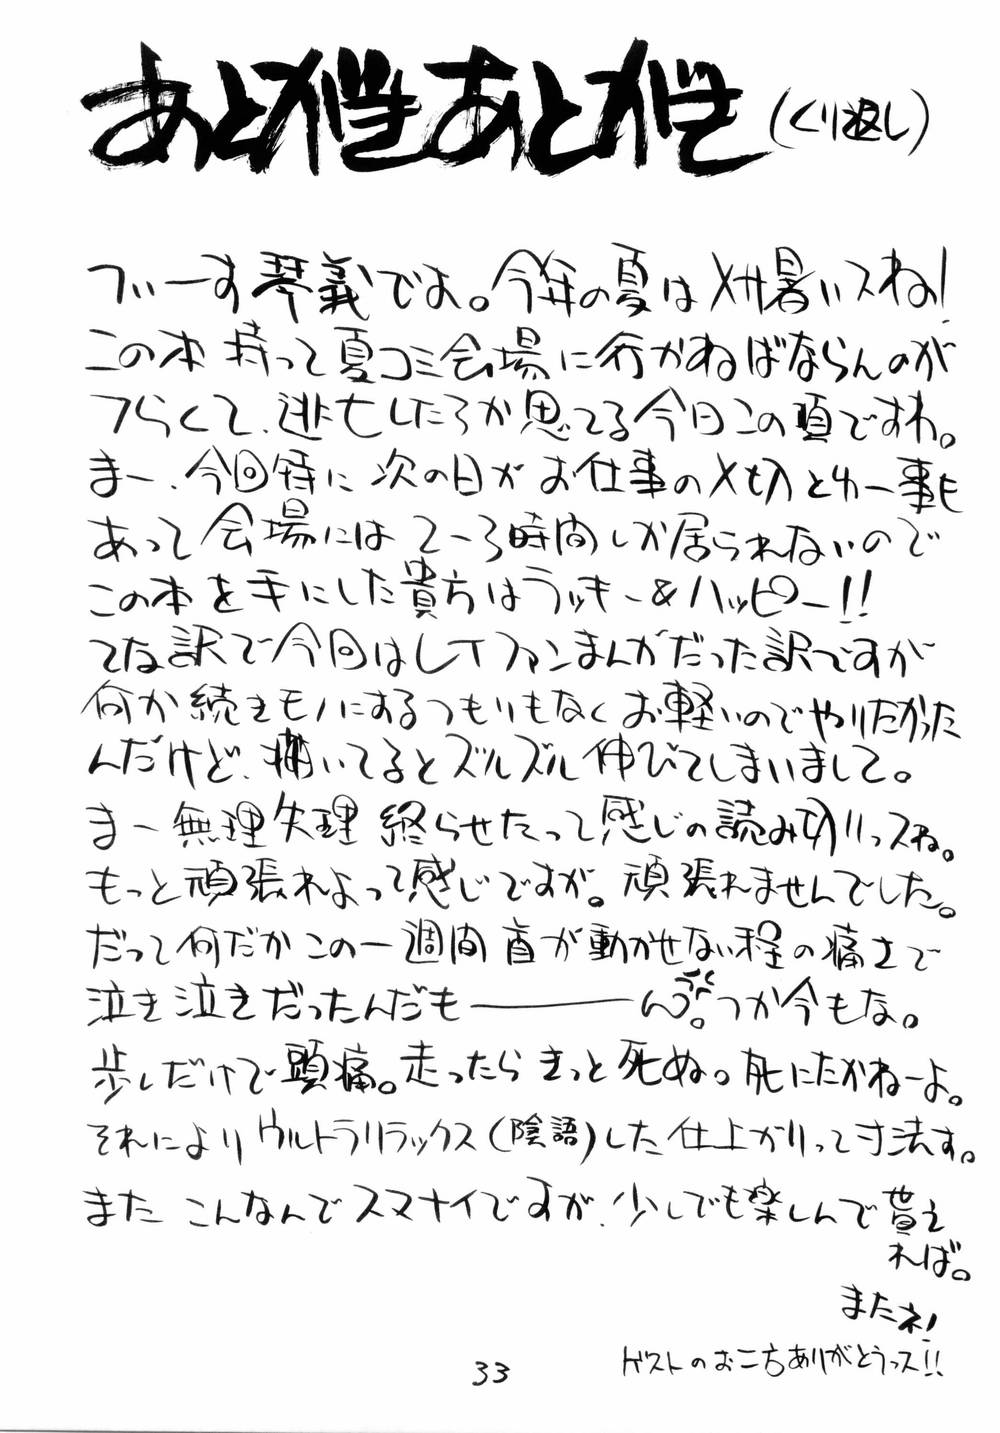 あとがきあとがき(くり返し)
ブいーす琴義でよ。今年の夏はメサ暑いスね!
この本持って夏コミ会場に行かねばならんのが
つらくて、逃亡したろか思てる今日この頃ですわ。
まー、今回特に次の日がお仕事の〆切とゆー事も
あって会場には2~3時間しか居られないので
この本を手にした貴方はラッキー&ハッピー!!
てな訳で今回はレイファンまんがだった訳ですが
何か続きモノにするつもりもなくお軽いのでやりたかった
んだけど、描いてるとズルズル伸びてしまいまして。
まー無理矢理終らせたって感じの読み切りっスね。
もっと頑張れよって感じですが。頑張れませんでした。
だって何だかこの一週間首が動かせない程の痛さで
泣き泣きだったんだも――――ん。つか今もな。
歩くだけで頭痛。走ったらきっと死ぬ。死にたかねーよ。
それによりウルトラリラックス(陰語)した仕上がりって寸法す。
またこんなんでスマナイですが、少しでも楽しんで貰え
れば。
またネ!
ゲストのお二方ありがとうっス!!
33